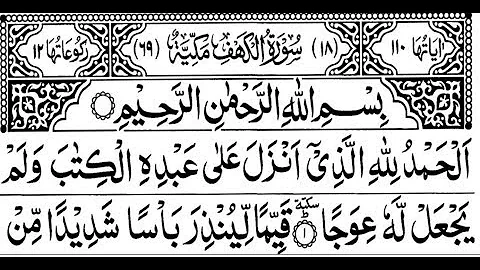 اٰيَاتُهَا ١١٠ (١٨) سُوْرَةُ الْكَهْفِ مَكِّيَّةٌ (٦٩) رُكُوْعَاتُهَا ١٢
بِسْمِ اللّٰهِ الرَّحْمٰنِ الرَّحِيْمِ
اَلْحَمْدُ لِلّٰهِ الَّذِيْۤ اَنْزَلَ عَلٰى عَبْدِهِ الْكِتٰبَ وَلَمْ
يَجْعَلْ لَّهٗ عِوَجًا ١ سكتة قَيِّمًا لِّيُنْذِرَ بَاْسًا شَدِيْدًا مِّنْ